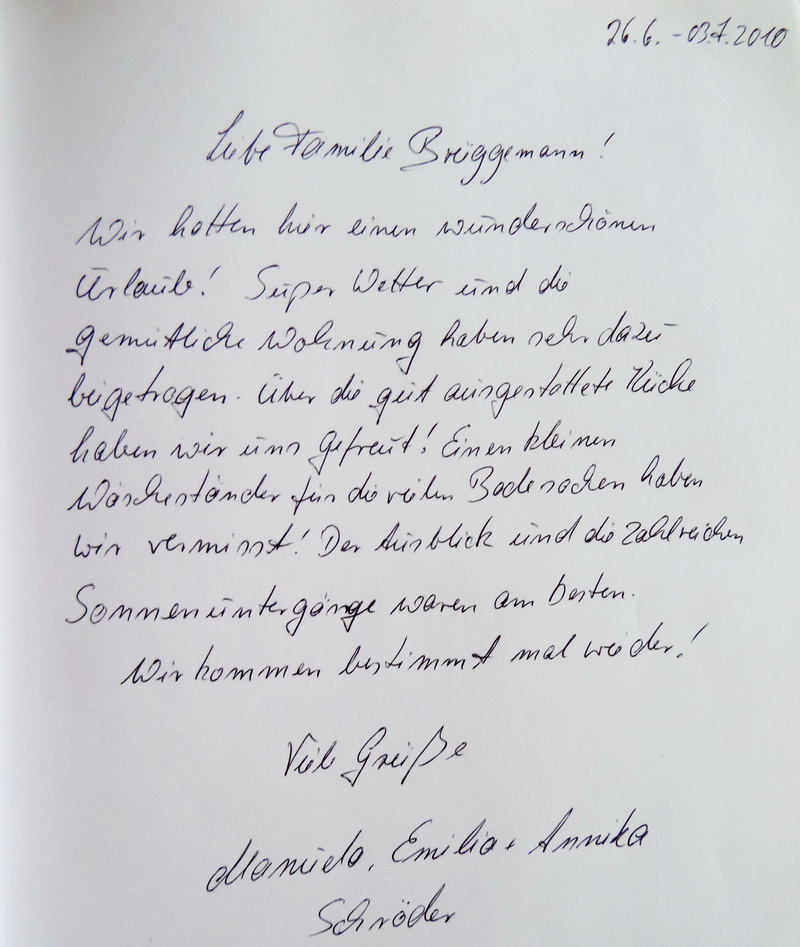 26.6. - 03.7.2010
Liebe Familie Brüggemann!
Wir hatten hier einen wunderschönen
Urlaub! Super Wetter und die
gemütliche Wohnung haben sehr dazu
beigetragen. Über die gut ausgestattete Küche
haben wir uns gefreut! Einen kleinen
Wäscheständer für die vielen Badesachen haben
wir vermisst! Der Ausblick und die zahlreichen
Sonnenuntergänge waren am besten.
Wir kommen bestimmt mal wieder!
Viele Grüße
Manuela, Emilia + Annika
Schröder